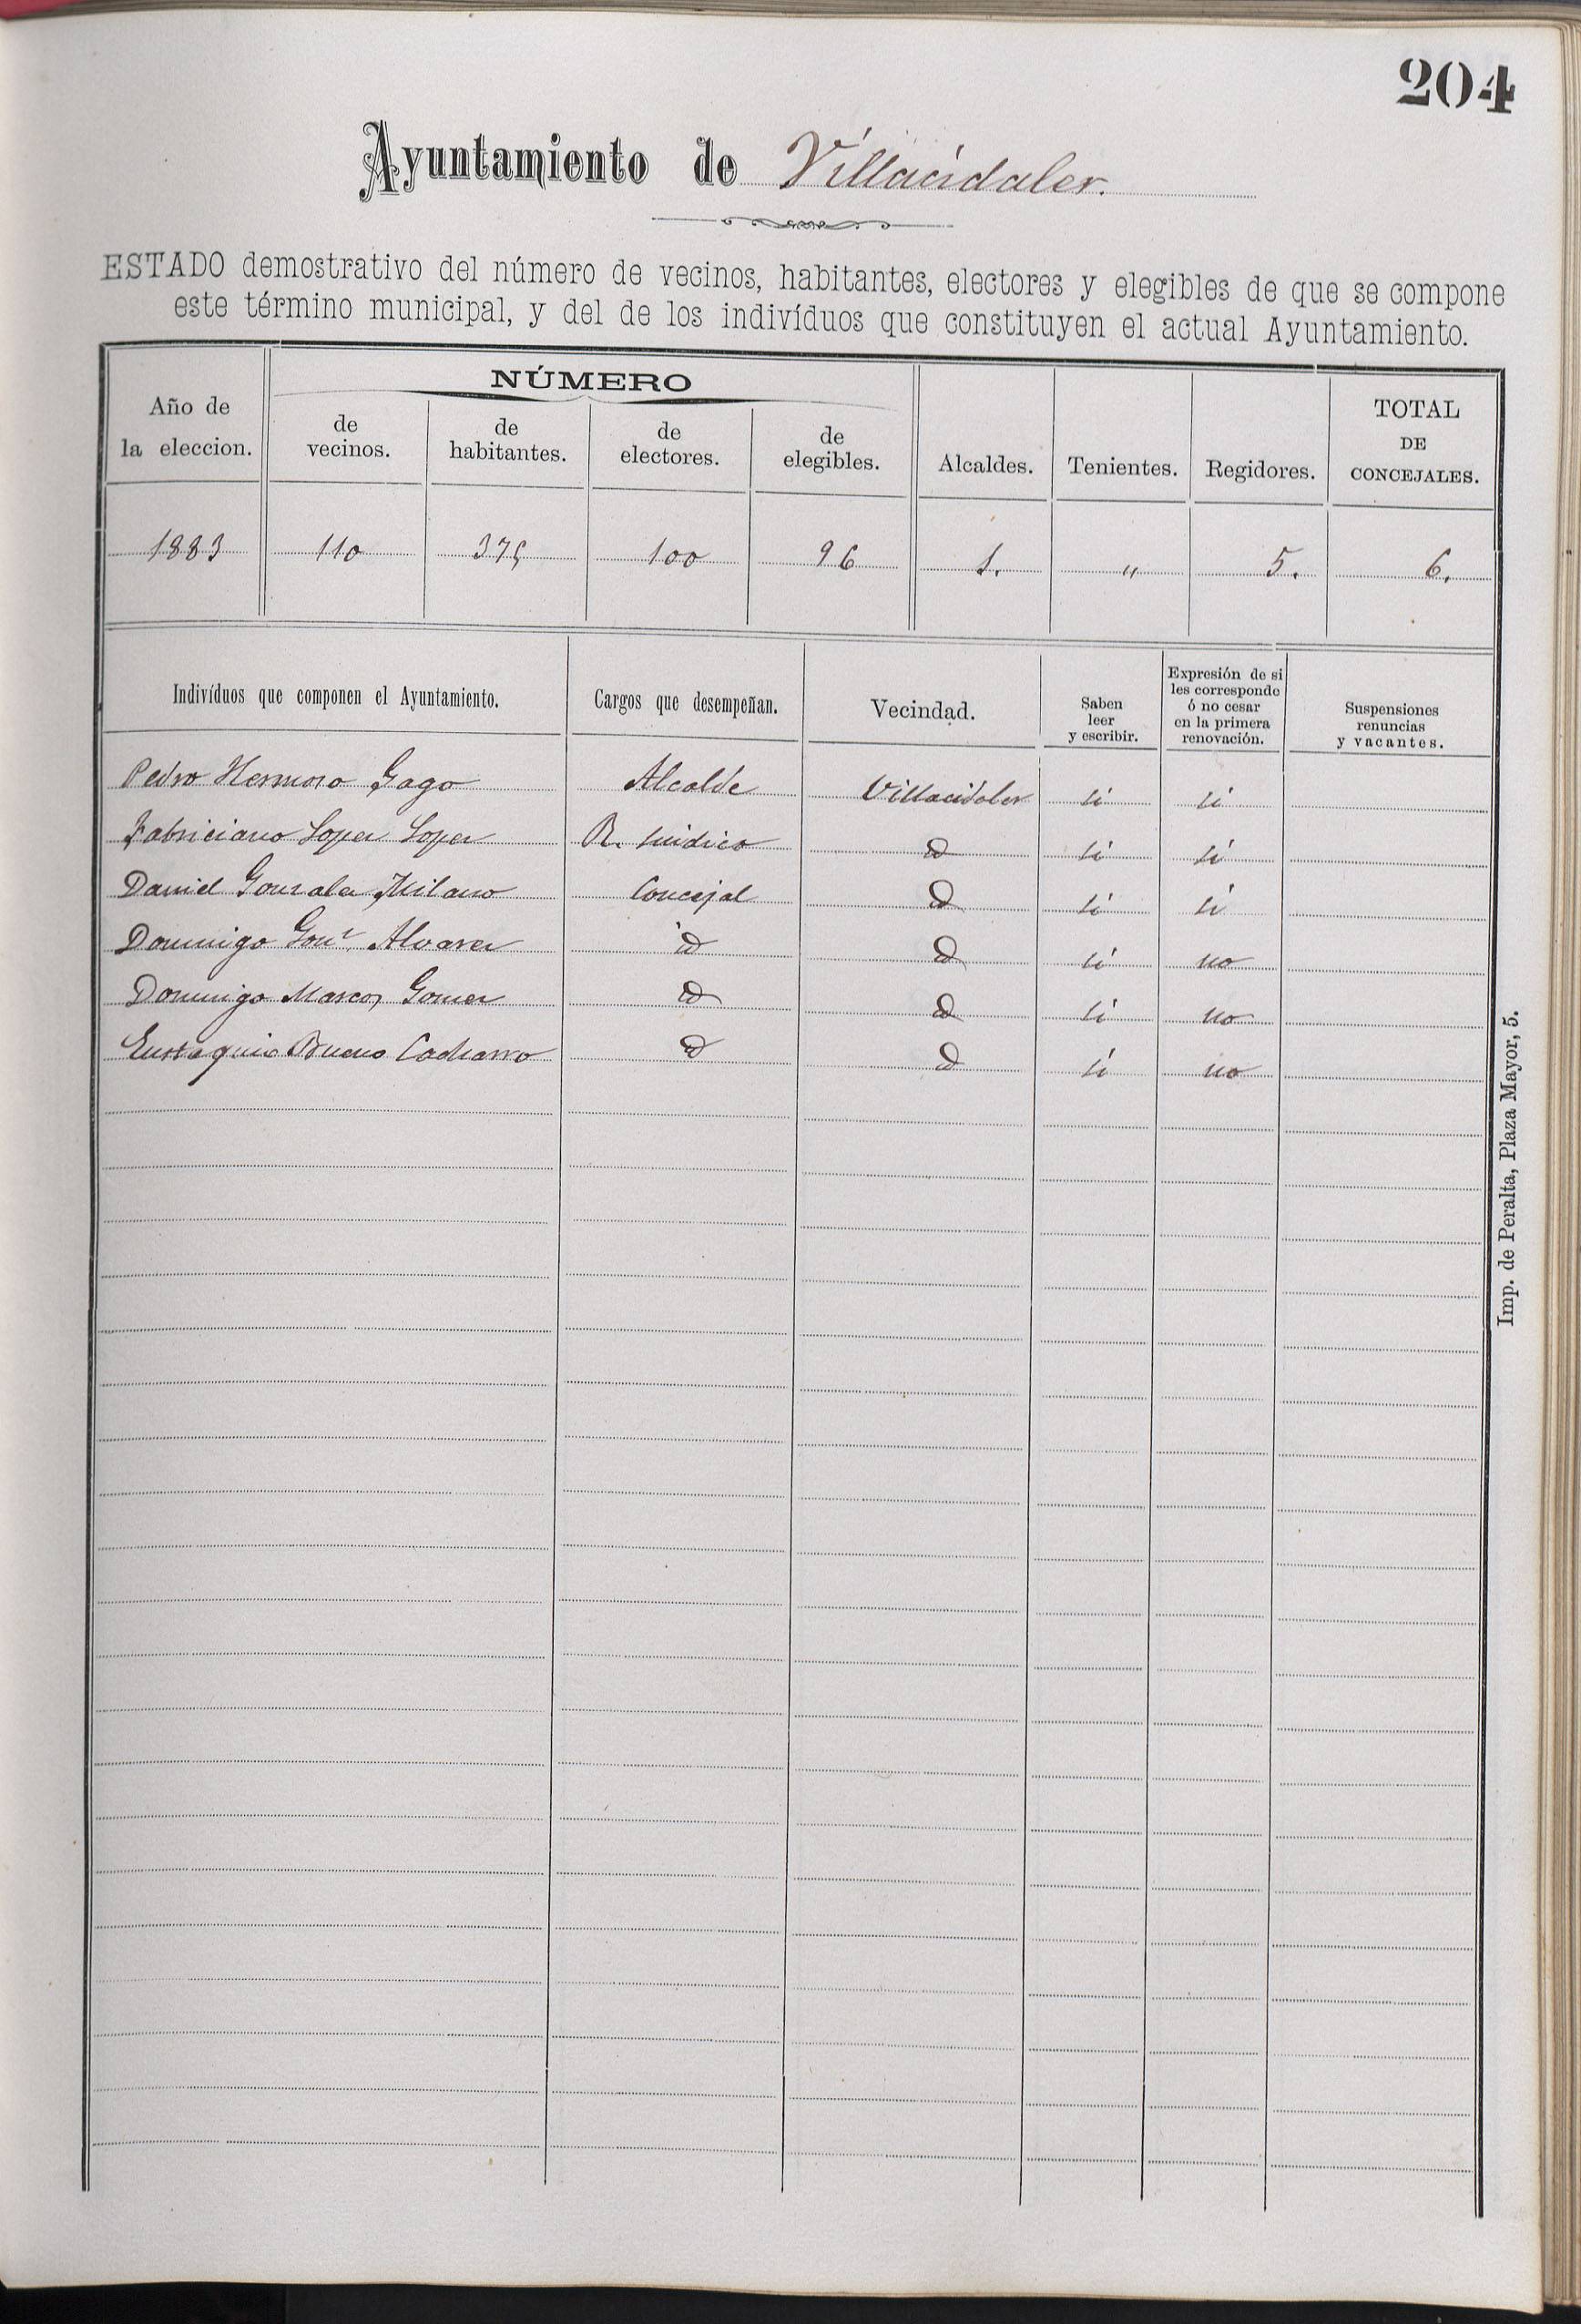 204
Ayuntamiento de Villacidaler.
ESTADO demostrativo del número de vecinos, habitantes, electores y elegibles de que se compone
este término municipal, y del de los indivíduos que constituyen el actual Ayuntamiento.
Año de la eleccion.
NÚMERO
de vecinos.
de habitantes.
de electores.
de elegibles.
Alcaldes.
Tenientes.
Regidores.
TOTAL DE CONCEJALES.
1883 110 375 100 96 1. " 5. 6.
Indivíduos que componen el Ayuntamiento.
Cargos que desempeñan.
Vecindad.
Saben leer y escribir.
Expresión de si les corresponde ó no cesar en la primera renovación.
Suspensiones renuncias y vacantes.
Pedro Hermoso Gago Alcalde Villacidaler si si
Fabriciano Lopez Lopez R. sindico id si si
Daniel Gonzalez Milano Concejal id si si
Domingo Gonz Alvarez id id si no
Domingo Marcos Gomez id id si no
Eustaquio Bueno Cacharro id id si no
Imp. de Peralta, Plaza Mayor, 5.